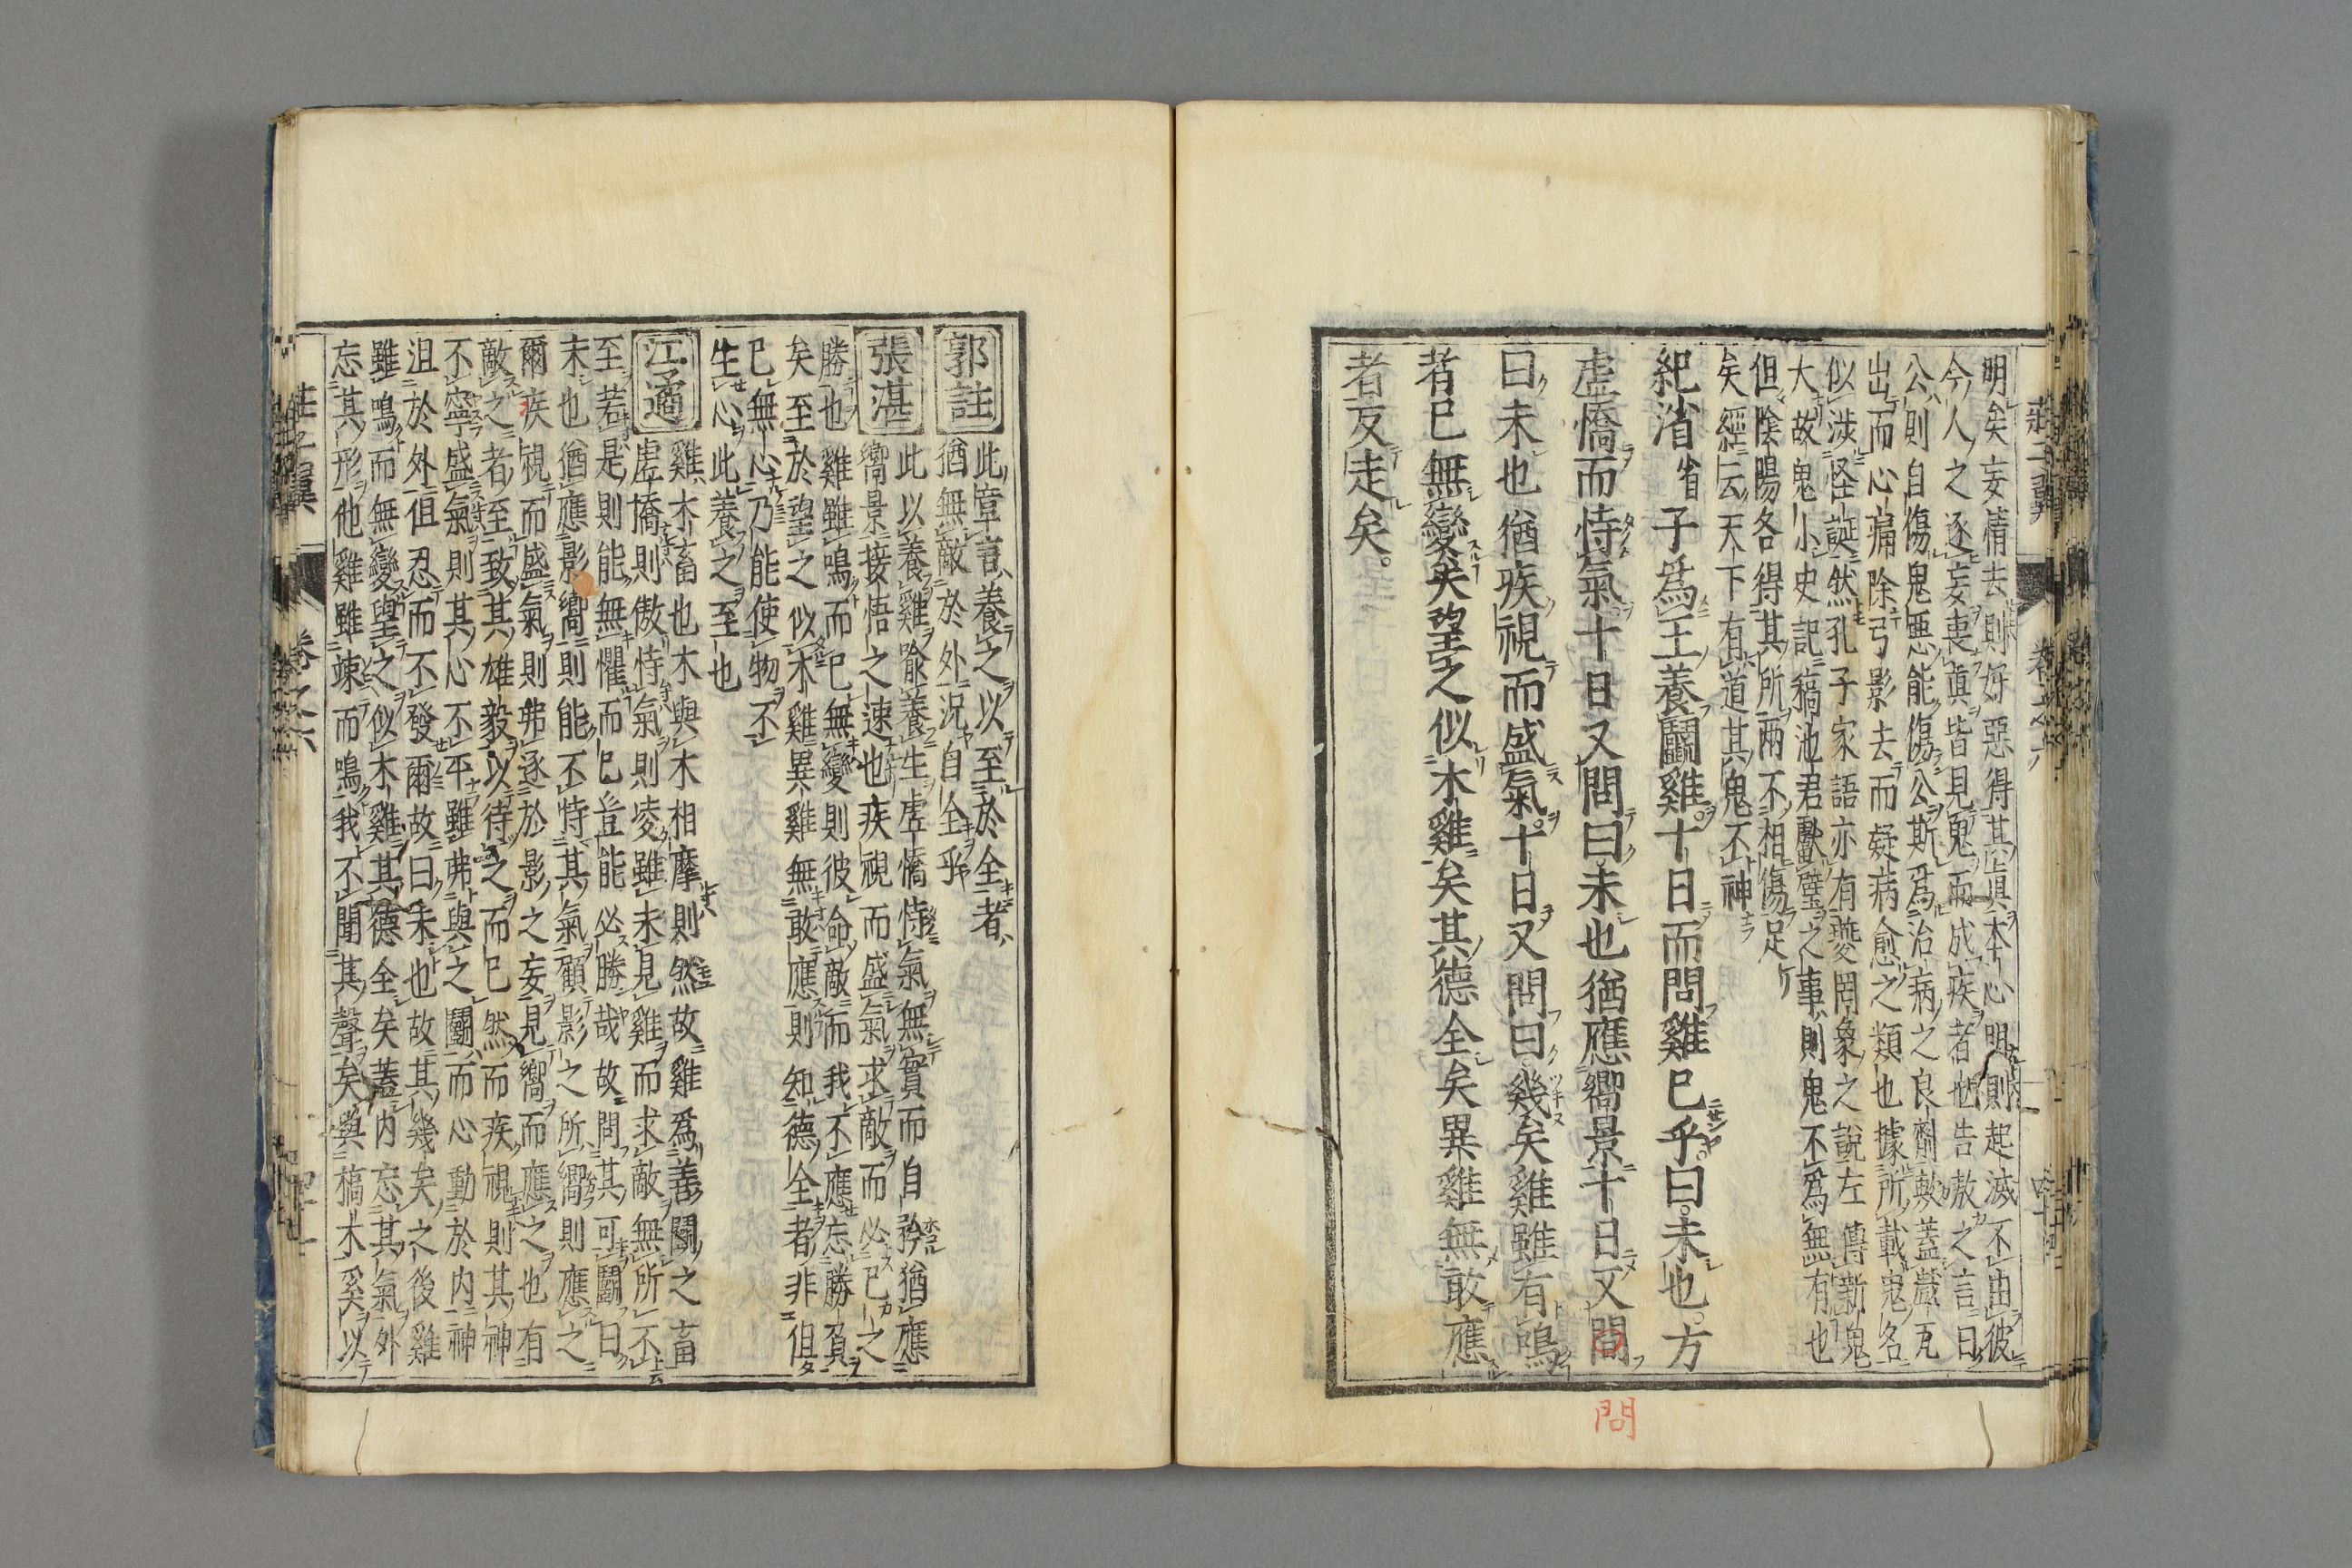 明矣妄情去則好惡得其眞本心明則起滅不由彼
今人之逐妄喪眞皆見鬼而成疾者也告敖之言曰
公則自傷鬼惡能傷公斯爲治病之良劑歟蓋
出而心痛除弓影去而疑病愈之類也據所載鬼名
似涉怪誕然孔子家語亦有夔罔象之說左傳新鬼
大故鬼小史記稿池君獻璧之事則鬼不爲無有也
但陰陽各得其所兩不相傷足
矣經云天下有道其鬼不神
紀渻省子爲王養鬭雞十日而問雞已乎曰未也方
虛憍而恃氣十日又問曰未也猶應嚮景十日又問
曰未也猶疾視而盛氣十日又問曰幾矣雞雖有鳴
者已無變矣望之似木雞矣其德全矣異雞無敢應
者反走矣
問
郭註
此章言養之以至於全者
猶無敵於外況自全乎
張湛
此以養雞喩養生虛憍恃氣無實而自矜猶應
嚮景接悟之速也疾視而盛氣求敵而必己之
勝也雞雖鳴而已無變則彼命敵而我不應忘勝負
矣至於望之似木雞異雞無敢應則知德全者非但
已無心乃能使物不
生心此養之至也
江遹
雞木畜也木與木相摩則然故雞爲善鬭之畜
虛憍則傲恃氣則凌雖未見雞而求敵無所不
至若是則能無懼而已豈能必勝哉故問其可鬭曰
未也猶應影嚮則能不恃其氣顧影之所嚮則應之
爾疾視而盛氣則弗逐於影之妄見嚮而應之也有
敵之者至致其雄毅以待之而已然而疾視則其神
不寧盛氣則其心不平雖弗與之鬭而心動於內神
沮於外徂忍而不發爾故曰未也故其幾矣之後雞
雖鳴而無變望之似木雞其德全矣蓋內忘其氣外
忘其形他雞雖竦而鳴我不聞其聲矣與槁木奚以